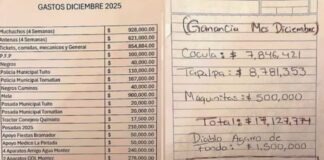 GASTOS DICIEMBRE 2025
Muchachos (4 Semanas) $ 928,000.00
Antenas (4 Semanas) $ 621,000.00
Tickets, comidas, mecanicos y General $ 854,884.00
P.F.P $ 100,000.00
Negros $ 40,000.00
Policia Municipal Tuito $ 20,000.00
Policia Municipal Tomatlan $ 387,000.00
Negros Caminos $ 40,000.00
Mele $ 900,000.00
Posada Municipal Tuito $ 20,000.00
Posada Municipal Tomatlan $ 30,000.00
Tractor Conejero Quimixto $ 17,500.00
Posadas 2025 $ 210,000.00
Apoyo Fiestas Bramador $ 50,000.00
Apoyo Medico La Peinada $ 50,000.00
4 Aparatos Amigo Agua Montez $ 240,000.00
(Ganancia Mes Diciembre)
Cocula: $ 7,846,421
Tapalpa: $ 8,781,353
Maquinitas: $ 500,000
Total: $ 17,127,774
Diablo Agarro de
fondo: $ 1,500,000